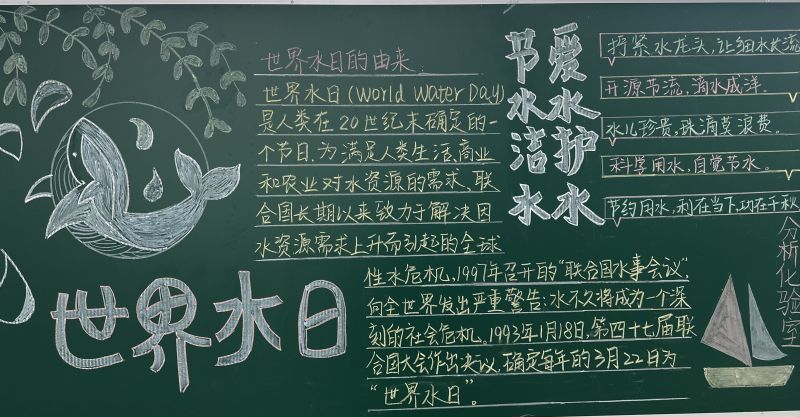 世界水日
世界水日的由来:
世界水日(World Water Day)
是人类在20世纪末确定的一
个节日,为满足人类生活、商业
和农业对水资源的需求、联
合国长期以来致力于解决因
水资源需求上升而引起的全球
性水危机,1997年召开的“联合国水事会议”,
向全世界发出严重警告:水不久将成为一个深
刻的社会危机。1993年1月18日,第四十七届联
合国大会作出决议,确定每年的3月22日为
“世界水日”。
节水洁水
爱水护水
拧紧水龙头,让细水长流
开源节流,滴水成洋.
水儿珍贵,珠滴莫浪费.
科学用水,自觉节水.
节约用水,利在当下,功在千秋
分析化验室